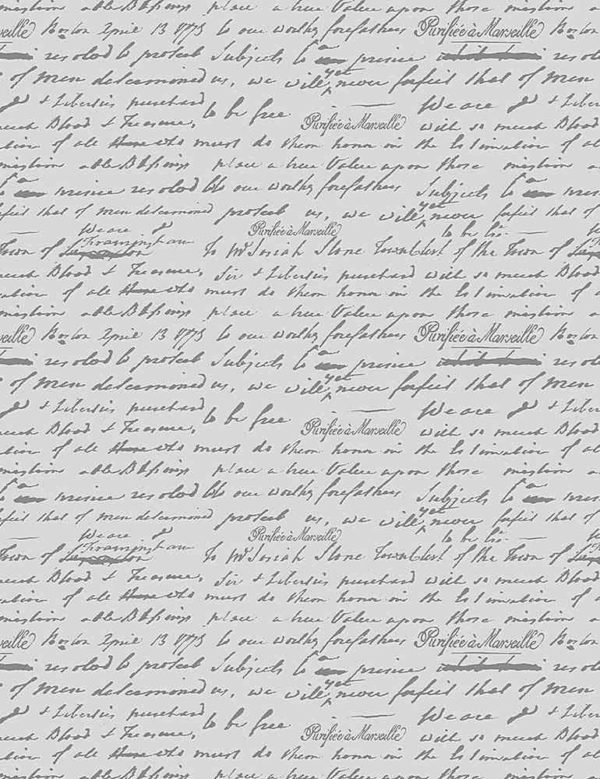 mission able Blessings place a true Value upon those mission a
Boston April 13 1775 to our worthy forefathers Purifiée à Marseille Bos
resolved to protect Subjects to a prince
of men determined us, we will yet never forfeit that of men
& Liberties purchased to be free We are & Liber
much Blood & Treasure, Purifiée à Marseille with so much Blood
of all who must do them honor in the Estimation of all
mission able Blessings place a true Value upon those mission a
a prince resolved to our worthy forefathers Subjects to
that of men determined protect us, we will yet never forfeit that of men
We are Purifiée à Marseille to be
Town of Framingham To Mr Josiah Stone Town Clerk of the Town of
much Blood & Treasure, Sir & Liberties purchased with so much Blood
of all who must do them honor in the Estimation of all
mission able Blessings place a true Value upon those mission a
Boston April 13 1775 to our worthy forefathers Purifiée à Marseille Bos
resolved to protect Subjects to a prince
of men determined us, we will yet never forfeit that of men
& Liberties purchased to be free We are & Liber
much Blood & Treasure, Purifiée à Marseille with so much Blood
of all who must do them honor in the Estimation of all
mission able Blessings place a true Value upon those mission a
a prince resolved to our worthy forefathers Subjects to
that of men determined protect us, we will yet never forfeit that of men
We are Purifiée à Marseille to be
Town of Framingham To Mr Josiah Stone Town Clerk of the Town of
much Blood & Treasure, Sir & Liberties purchased with so much Blood
of all who must do them honor in the Estimation of all
mission able Blessings place a true Value upon those mission a
Boston April 13 1775 to our worthy forefathers Purifiée à Marseille Bos
resolved to protect Subjects to a prince
of men determined us, we will yet never forfeit that of men
& Liberties purchased to be free We are & Liber
much Blood & Treasure, Purifiée à Marseille with so much Blood
of all who must do them honor in the Estimation of all
mission able Blessings place a true Value upon those mission a